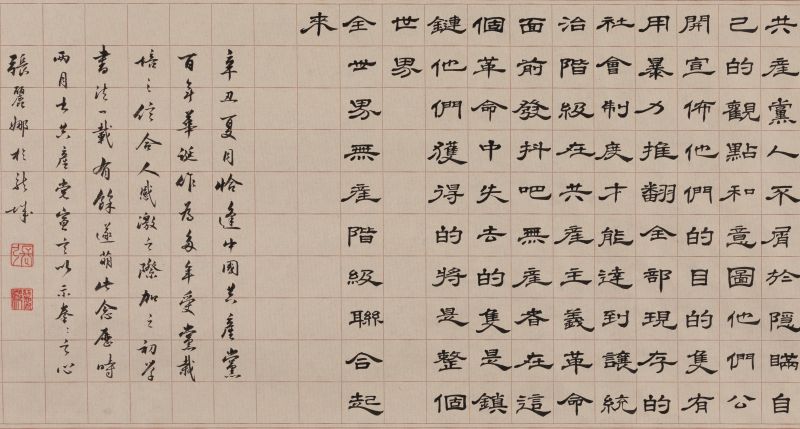 共產黨人不屑於隱瞞自
己的觀點和意圖他們公
開宣佈他們的目的隻有
用暴力推翻全部現存的
社會制度才能達到讓統
治階級在共產主義革命
面前發抖吧無產者在這
個革命中失去的隻是鎖
鏈他們獲得的將是整個
世界
全世界無產階級聯合起
來
辛丑夏月恰逢中國共產黨
百年華誕作為多年受黨栽
培之信合人感激之際加之初學
書法一載有餘遂萌此念歷時
兩月書共產党宣言以示拳〻之心
張麗娜於龍城